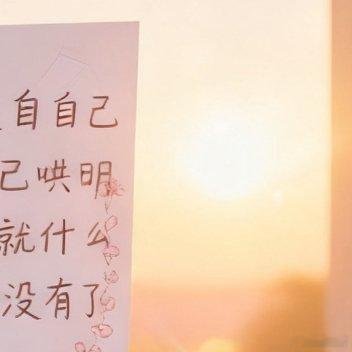 自自己
己哄明
就什么
没有了